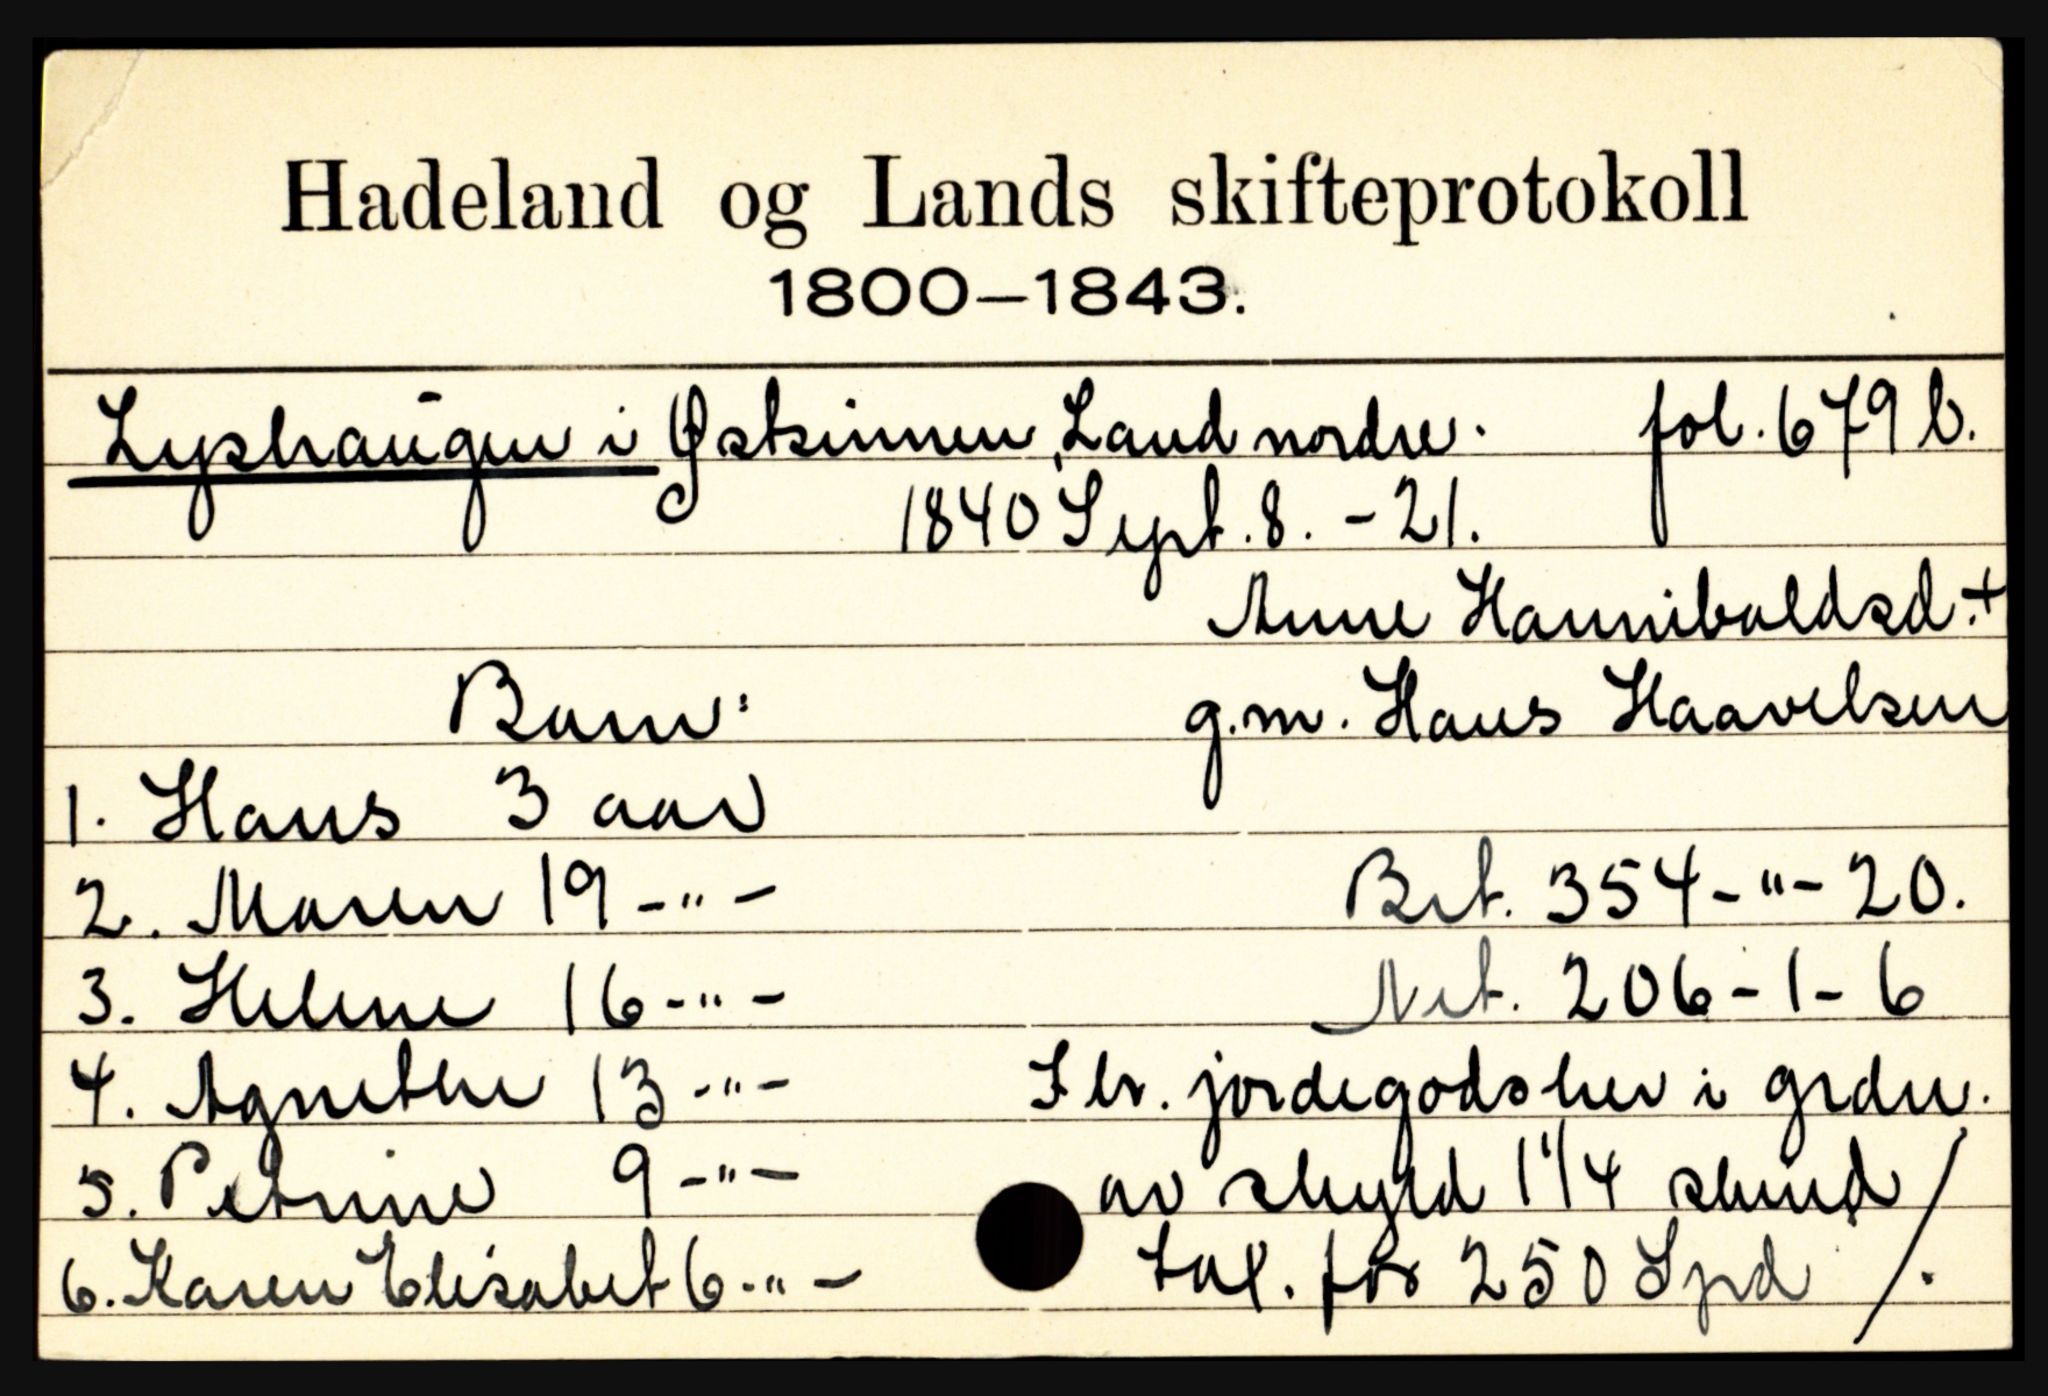 Hadeland og Lands skifteprotokoll
1800-1843.
Lyshaugen i Østsinnen, Land nordre. fol. 679 b.
1840 Sept. 8. - 21.
Anne Hannibaldsd. +
Barn: g.m. Hans Haavelsen
1. Hans 3 aar
2. Maren 19 -"- Brt. 354-"-20.
3. Helene 16 -"- Net. 206-1-6
4. Agnethe 13 -"- I br. jordegods her i grdn.
5. Petrine 9 -"- av skyld 1 1/4 skind
6. Karen Elisabet 6 -"- tax. for 250 Spd /.